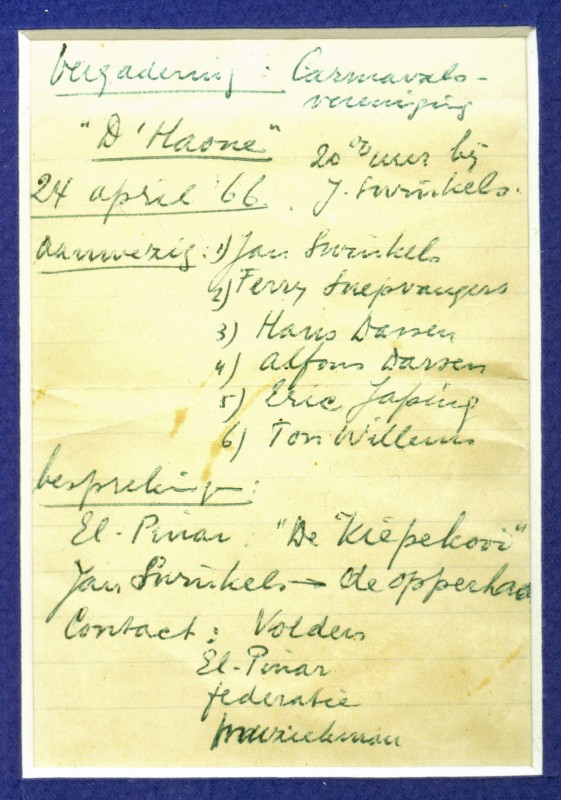 vergadering : Carnavals-
vereniging
"D'Haone" 20 00 uur bij
24 april '66. J. Swinkels.
aanwezig: 1) Jan Swinkels
2) Ferry Snepvangers
3) Hans Dassen
4) Alfons Dassen
5) Eric Japing
6) Ton Willems
bespreking:
El-Pinar "De Kiepekooi"
Jan Swinkels → de opperhaa
Contact: Volders
El-Pinar
federatie
muziekman